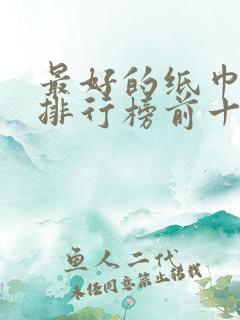 最好的纸巾
排行榜前十
鱼人二代
未经同意禁止转载